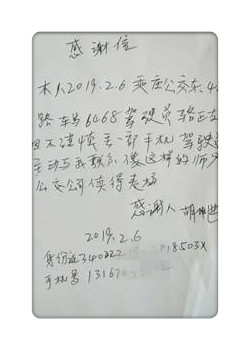 感谢信
本人2019.2.6乘座公交车.4
路车号6468驾驶员骆正
因不谨慎丢一部手机驾驶
主动与我联系像这样的师
公交公司值得表扬
感谢人胡
2019.2.6
身份证340222 18503X
手机号 13167